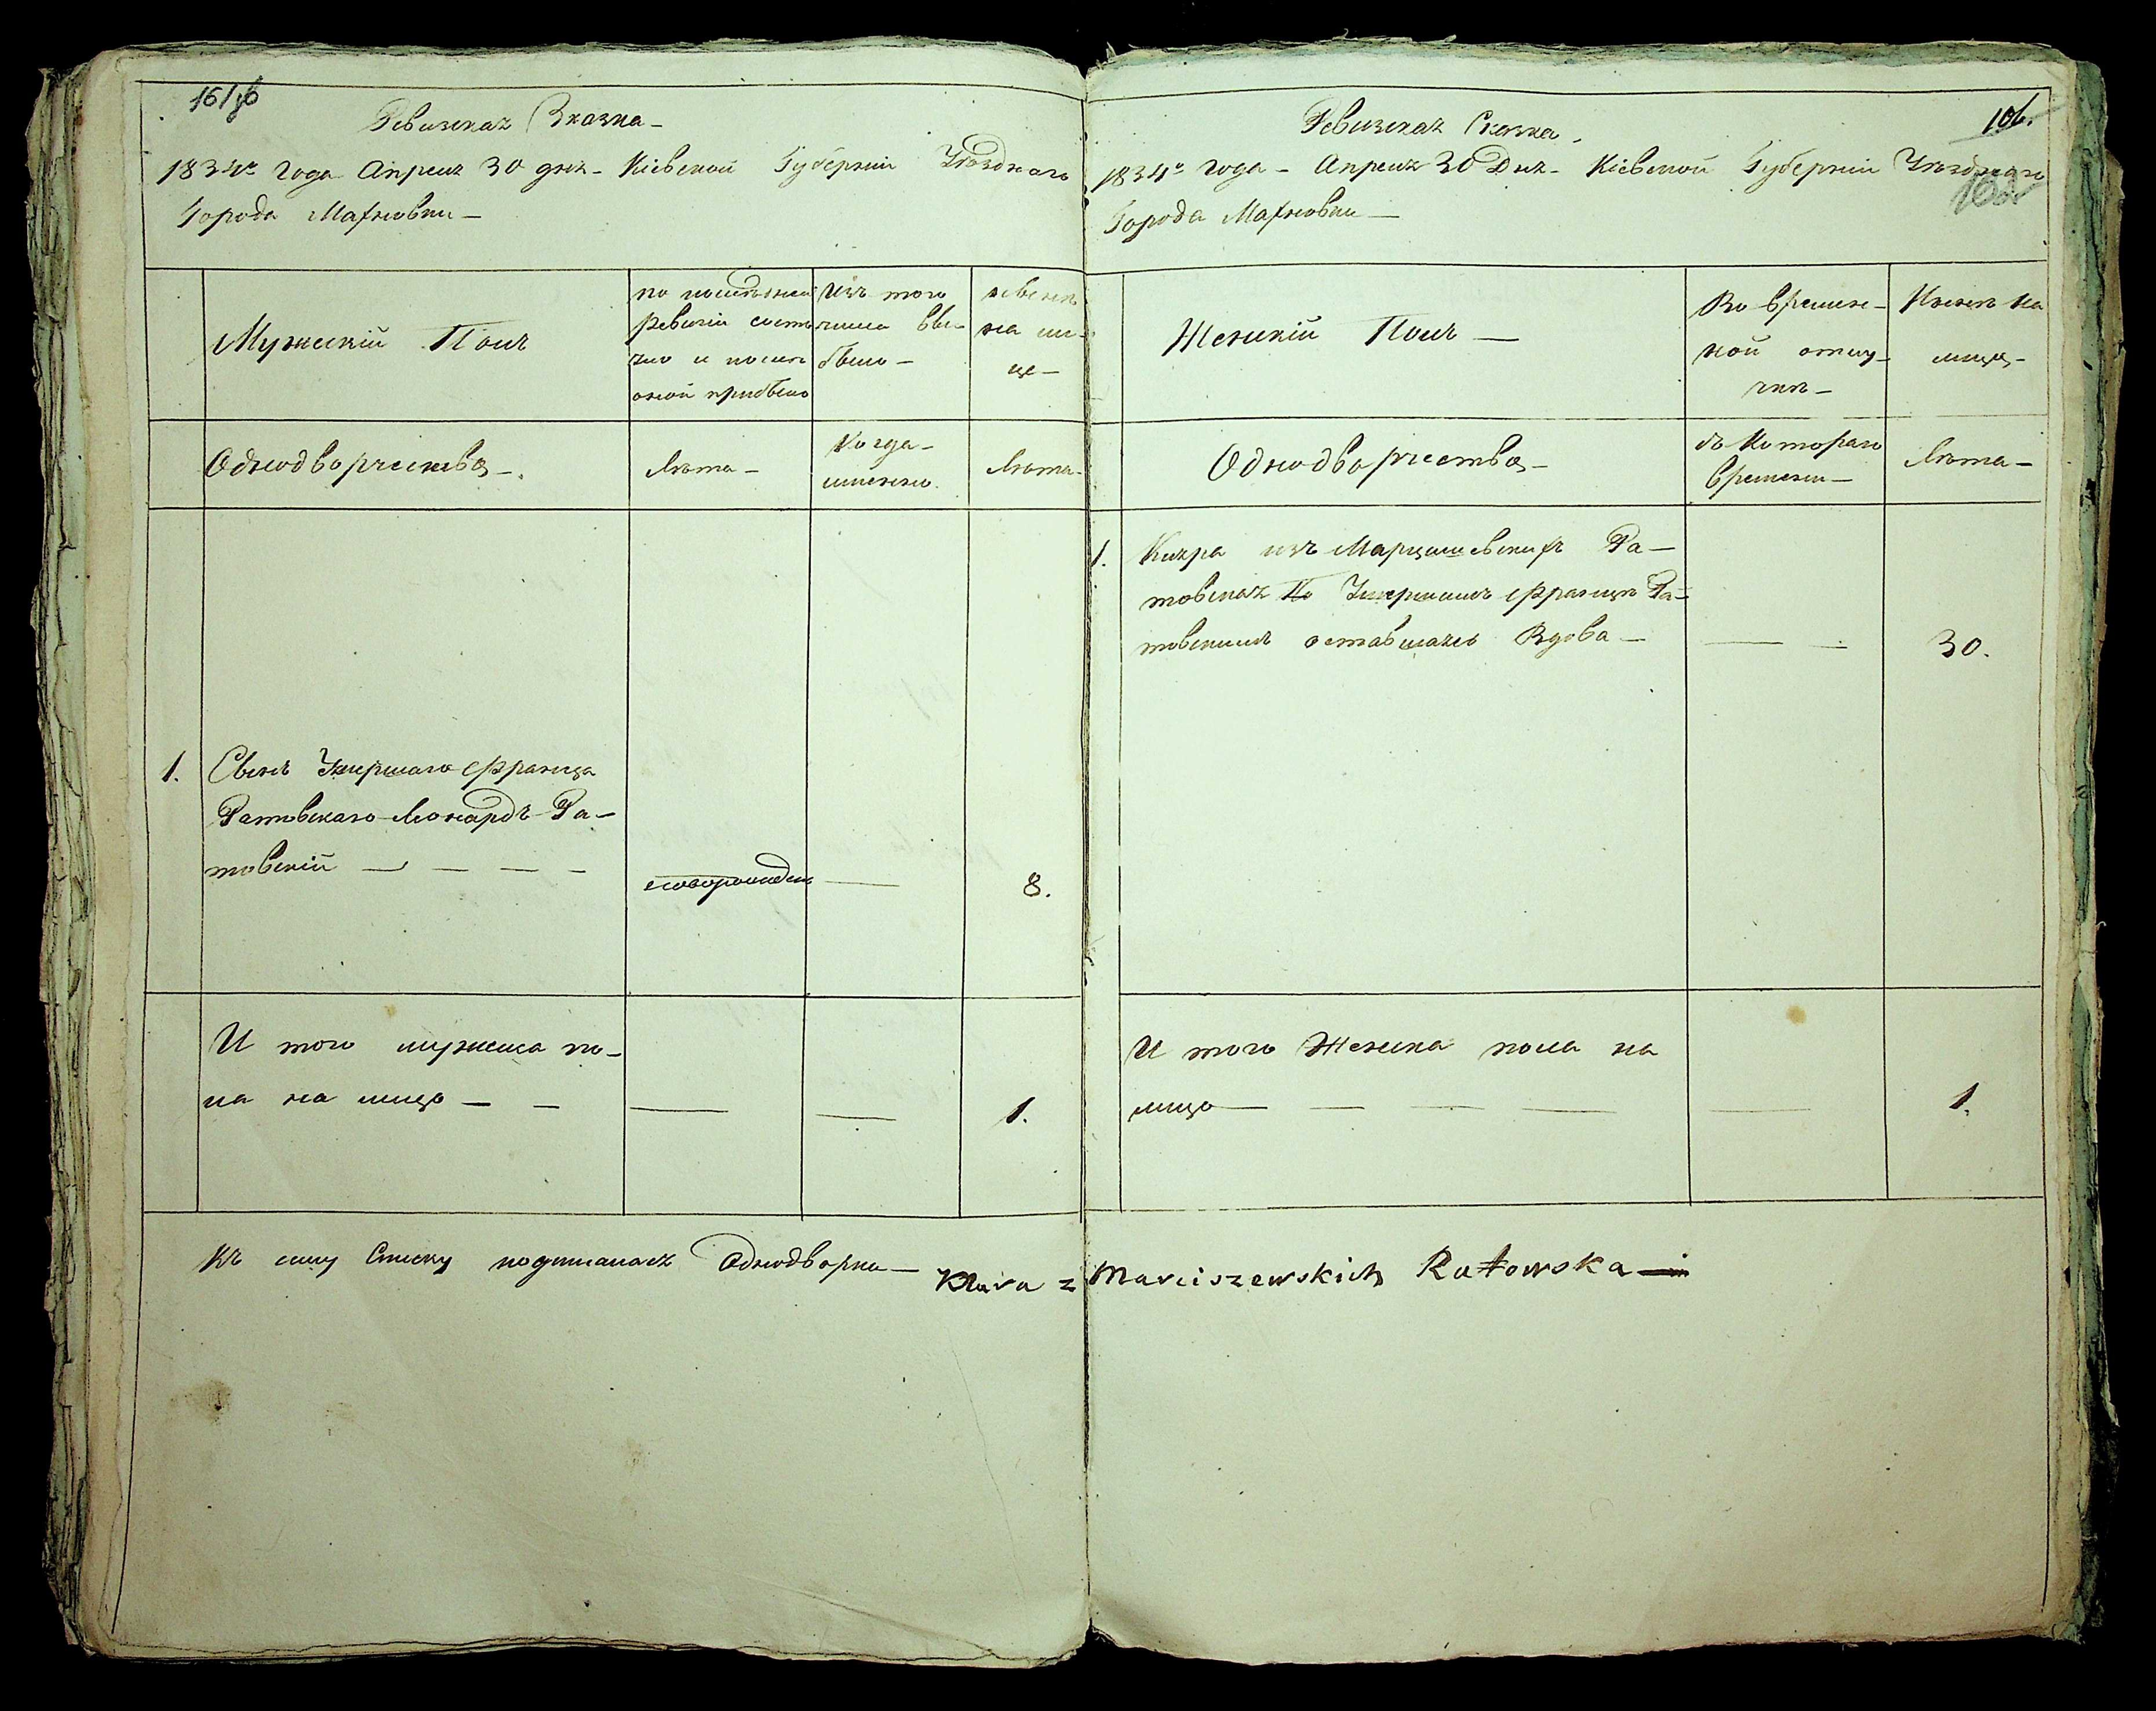 Ревизская Сказка
1834го года Апреля 30 дня Кіевской Губерніи Уѣзднаго
Города Махновки
Мужескій Полъ
по послѣдней
ревизіи состо
яло и после
оной прибыло
Изъ того
числа вы
было
нынѣ
на ли
це
Однодворчества
Лѣта
Когда
именно
Лѣта
1. Сынъ Умершаго Франца
Ратовскаго Леонардъ Ра-
товскій
новорожден
8.
И того мужеска по-
ла на лицо
1.
Къ сему Списку подписалася Однодворка
106.
Ревизская Сказка
1834го года Апреля 30 Дня Кіевской Губерніи Уѣзднаго
Города Махновки
Женскій Полъ
Во времен-
ной отлу-
чкѣ
Нынѣ на
лицо
Однодворчества
съ Котораго
времени
Лѣта
1. Кляра изъ Марцишевскихъ Ра-
товская По Умершимъ Францѣ Ра-
товскимъ оставшаяся Вдова
30.
И того Женска пола на
лицо
1.
Klara z Marciszewskich Ratowska